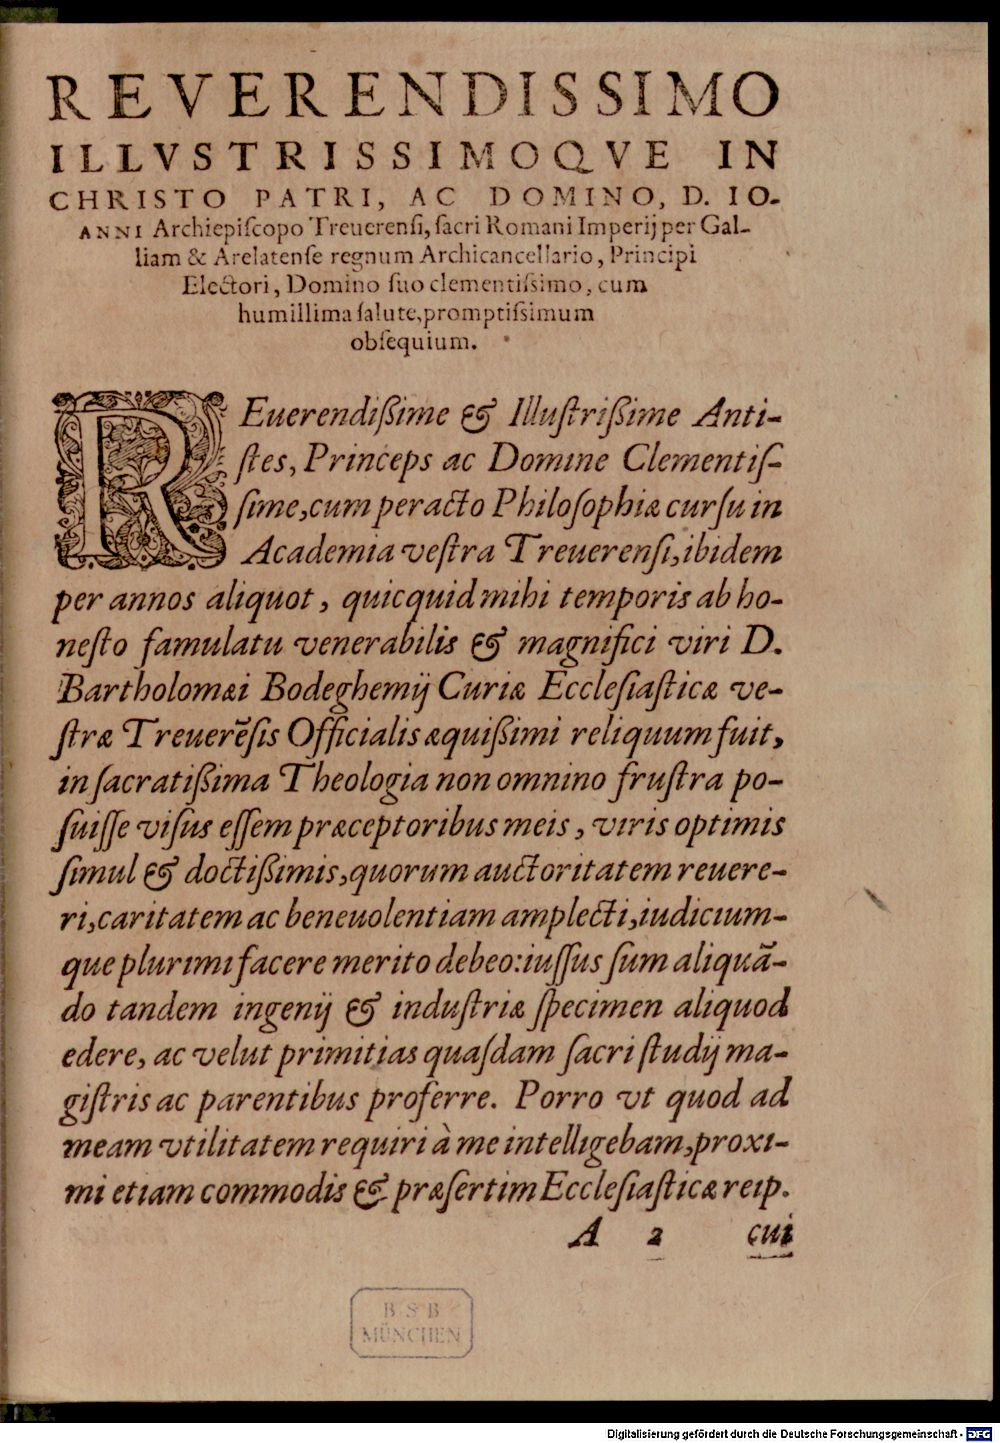 REVERENDISSIMO
ILLVSTRISSIMOQVE IN
CHRISTO PATRI, AC DOMINO, D. IO-
ANNI Archiepiſcopo Treuerenſi, ſacri Romani Imperij per Gal-
liam & Arelatenſe regnum Archicancellario, Principi
Electori, Domino ſuo clementiſsimo, cum
humillima ſalute, promptiſsimum
obſequium.
REuerendißime & Illuſtrißime Anti-
ſtes, Princeps ac Domine Clementiſ-
ſime, cum peracto Philoſophiæ curſu in
Academia veſtra Treuerenſi, ibidem
per annos aliquot, quicquid mihi temporis ab ho-
neſto famulatu venerabilis & magnifici viri D.
Bartholomæi Bodeghemij Curiæ Eccleſiaſticæ ve-
ſtræ Treuerẽſis Officialis æquißimi reliquum fuit,
in ſacratißima Theologia non omnino fruſtra po-
ſuiſſe viſus eſſem præceptoribus meis, viris optimis
ſimul & doctißimis, quorum auctoritatem reuere-
ri, caritatem ac beneuolentiam amplecti, iudicium-
que plurimi facere merito debeo: iuſſus ſum aliquã-
do tandem ingenij & induſtriæ ſpecimen aliquod
edere, ac velut primitias quaſdam ſacri ſtudij ma-
giſtris ac parentibus proferre. Porro vt quod ad
meam vtilitatem requiri à me intelligebam, proxi-
mi etiam commodis & præſertim Eccleſiaſticæ reip.
A 2 cui
BSB
MÜNCHEN
Digitalisierung gefördert durch die Deutsche Forschungsgemeinschaft - DFG